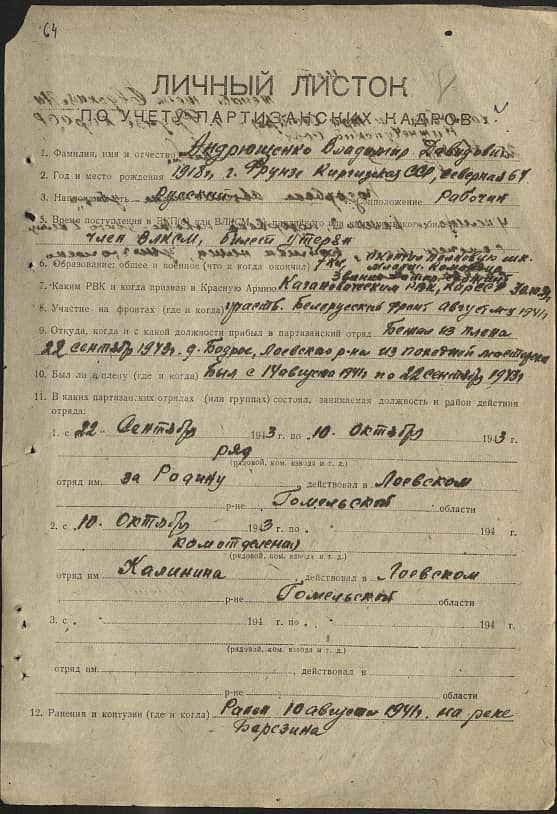 64
ЛИЧНЫЙ ЛИСТОК
ПО УЧЕТУ ПАРТИЗАНСКИХ КАДРОВ
1. Фамилия, имя и отчество Андрющенко Владимир Давидович
2. Год и место рождения 1918г г. Фрунзе Киргизская ССР, Северная 67
3. Русский положение Рабочий
5. Время поступления в или ВЛКСМ
член ВЛКСМ, билет утерян
6. Образование: общее и военное (что и когда окончил) 7 кл, полковую шк.
7. Каким РВК и когда призван в Красную Армию РВК,
8. Участие на фронтах (где и когда) участв. Белорусский фронт август м-ц 1941г
9. Откуда, когда и с какой должности прибыл в партизанский отряд Бежал из плена
22 сентября 1943г. д. Лоевская р-на из мастерск
10. Был ли в плену (где и когда) был с 14 августа 1941г по 22 сентября 1943г
11. В каких партизанских отрядах (или группах) состоял, занимаемая должность и район действия
отряда:
1. с 22 Сентябрь 1943 г. по 10 Октябрь 1943 г.
ряд
(рядовой, ком. взвода и т. д.)
отряд им. за Родину, действовал в Лоевском
р-не Гомельской области
2. с 10 Октябрь 1943 г. по 194 г.
ком отделения
(рядовой, ком. взвода и т. д.)
отряд им Калинина, действовал в Лоевском
р-не Гомельской области
3. с 194 г. по 194 г.
(рядовой, ком. взвода и т. д.)
отряд им., действовал в
р-не области
12. Ранения и контузии (где и когда) Ранен 10 августа 1941г. на реке
Березина